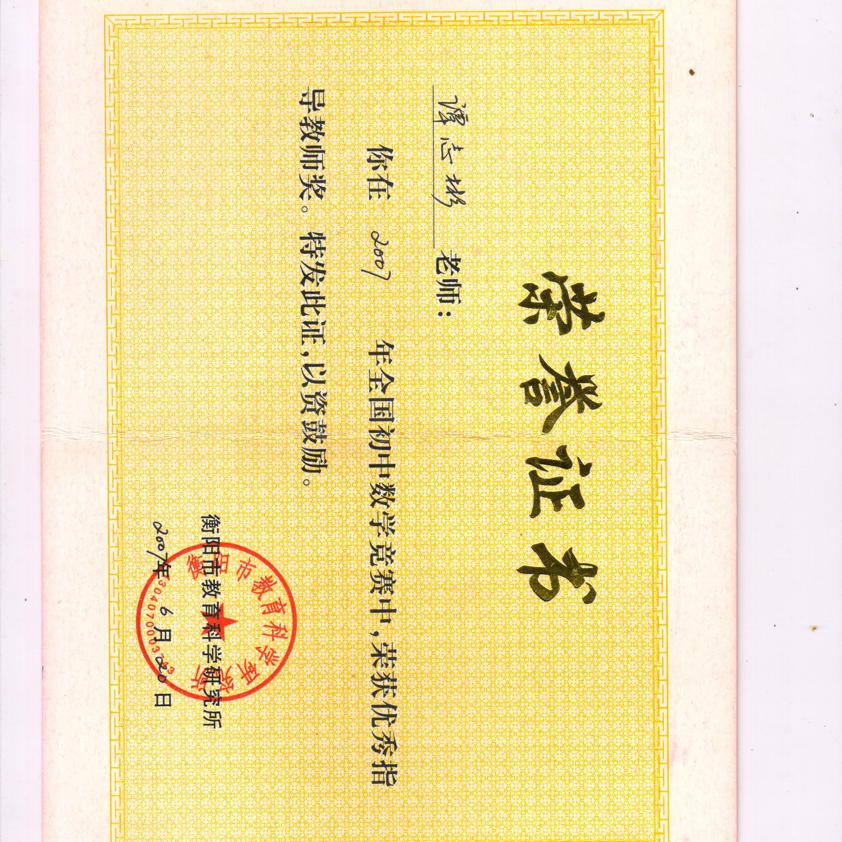 荣誉证书
谭志彬 老师：
你在 2007 年全国初中数学竞赛中，荣获优秀指
导教师奖。特发此证，以资鼓励。
衡阳市教育科学研究所
2007年 6月 20日
衡阳市教育科学研究所